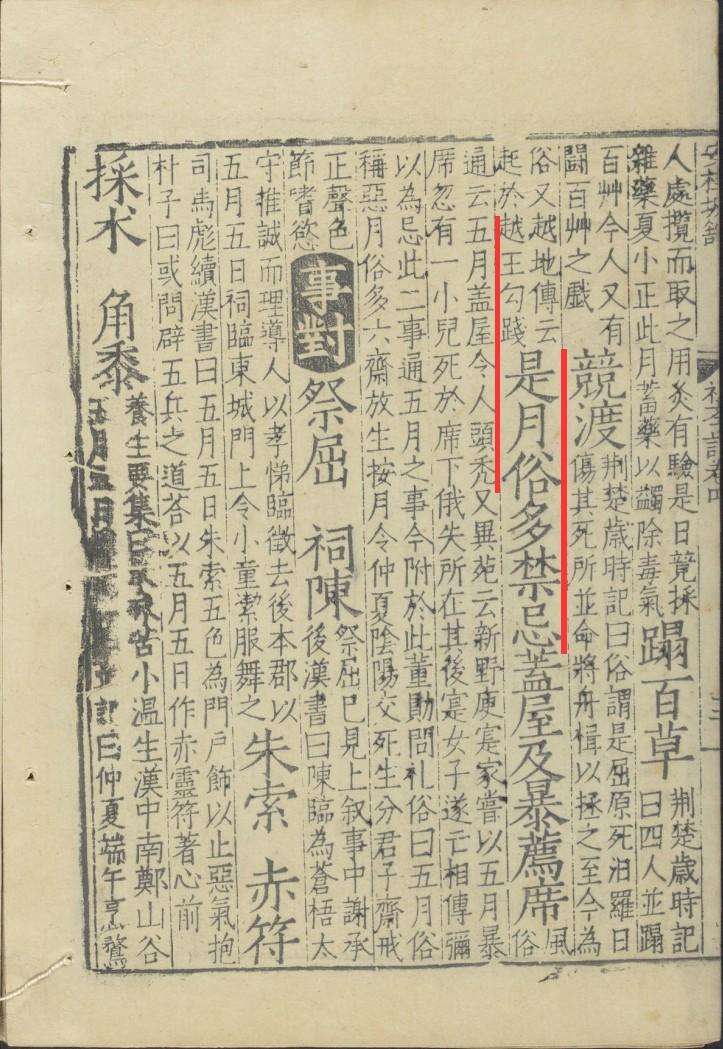 安桂坡館 初學記卷四 三
人處攬而取之用灸有驗是日競採
雜藥夏小正此月蓄藥以蠲除毒氣
蹋百草
荆楚歲時記
曰四人並蹋
百艸今人又有
鬪百艸之戲
競渡
荆楚歲時記曰俗謂是屈原死汨羅日
傷其死所並命將舟楫以拯之至今為
俗又越地傳云
起於越王勾踐
是月俗多禁忌蓋屋及暴薦席
風
俗
通云五月盖屋令人頭禿又異苑云新野庾寔家嘗以五月暴
席忽有一小兒死於席下俄失所在其後寔女子遂亡相傳彌
以為忌此二事通五月之事今附於此董勛問礼俗曰五月俗
稱惡月俗多六齋放生按月令仲夏陰陽交死生分君子齋戒
正聲色
節嗜慾
事對
祭屈 祠陳
祭屈已見上叙事中謝承
後漢書曰陳臨為蒼梧太
守推誠而理導人以孝悌臨徵去後本郡以
五月五日祠臨東城門上令小童潔服舞之
朱索 赤符
司馬彪續漢書曰五月五日朱索五色為門戶飾以止惡氣抱
朴子曰或問辟五兵之道荅以五月五日作赤靈符著心前
採术 角黍
養生要集曰术味苦小温生漢中南鄭山谷
五月五日 記曰仲夏端午烹鶩